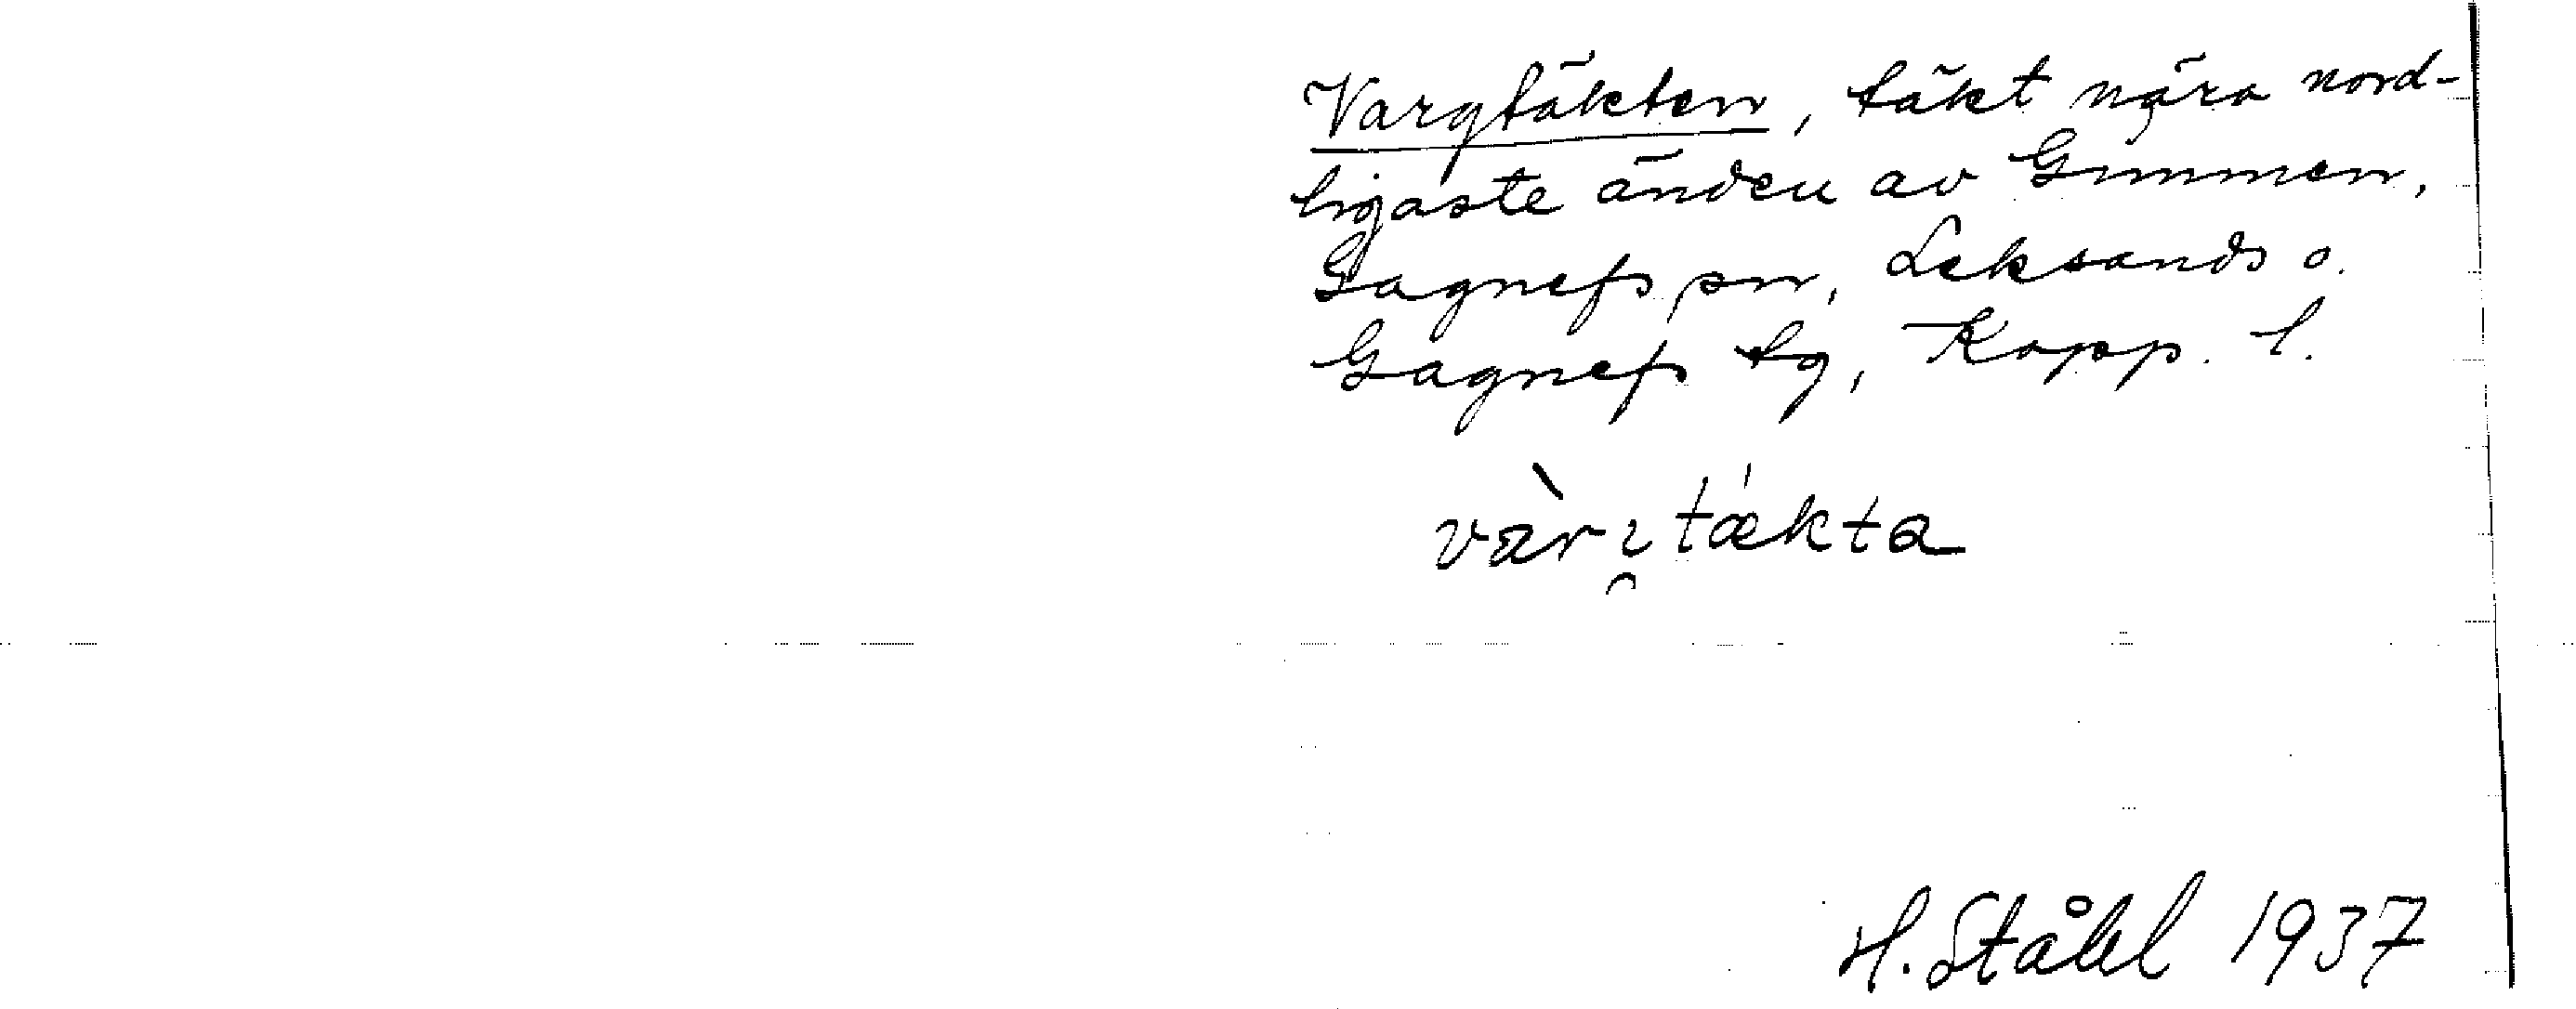 Vargtäkten, täkt nära nord-
ligaste änden av Gimmen,
Gagnefs sn, Leksands o.
Gagnefs tg, Kopp. l.
vàrı̯tækta
H. Ståhl 1937